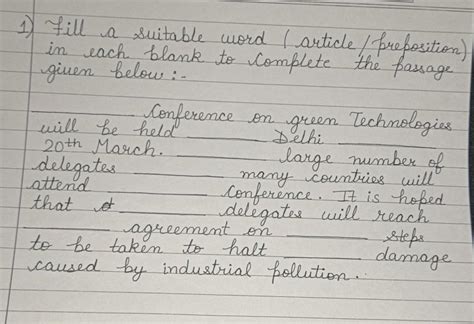 1) Fill a suitable word (article/preposition)
in each blank to complete the passage
given below :-
________ Conference on green Technologies
will be held ________ Delhi ________
20th March. ________ large number of
delegates ________ many countries will
attend ________ conference. It is hoped
that ________ delegates will reach
________ agreement on ________ steps
to be taken to halt ________ damage
caused by industrial pollution.